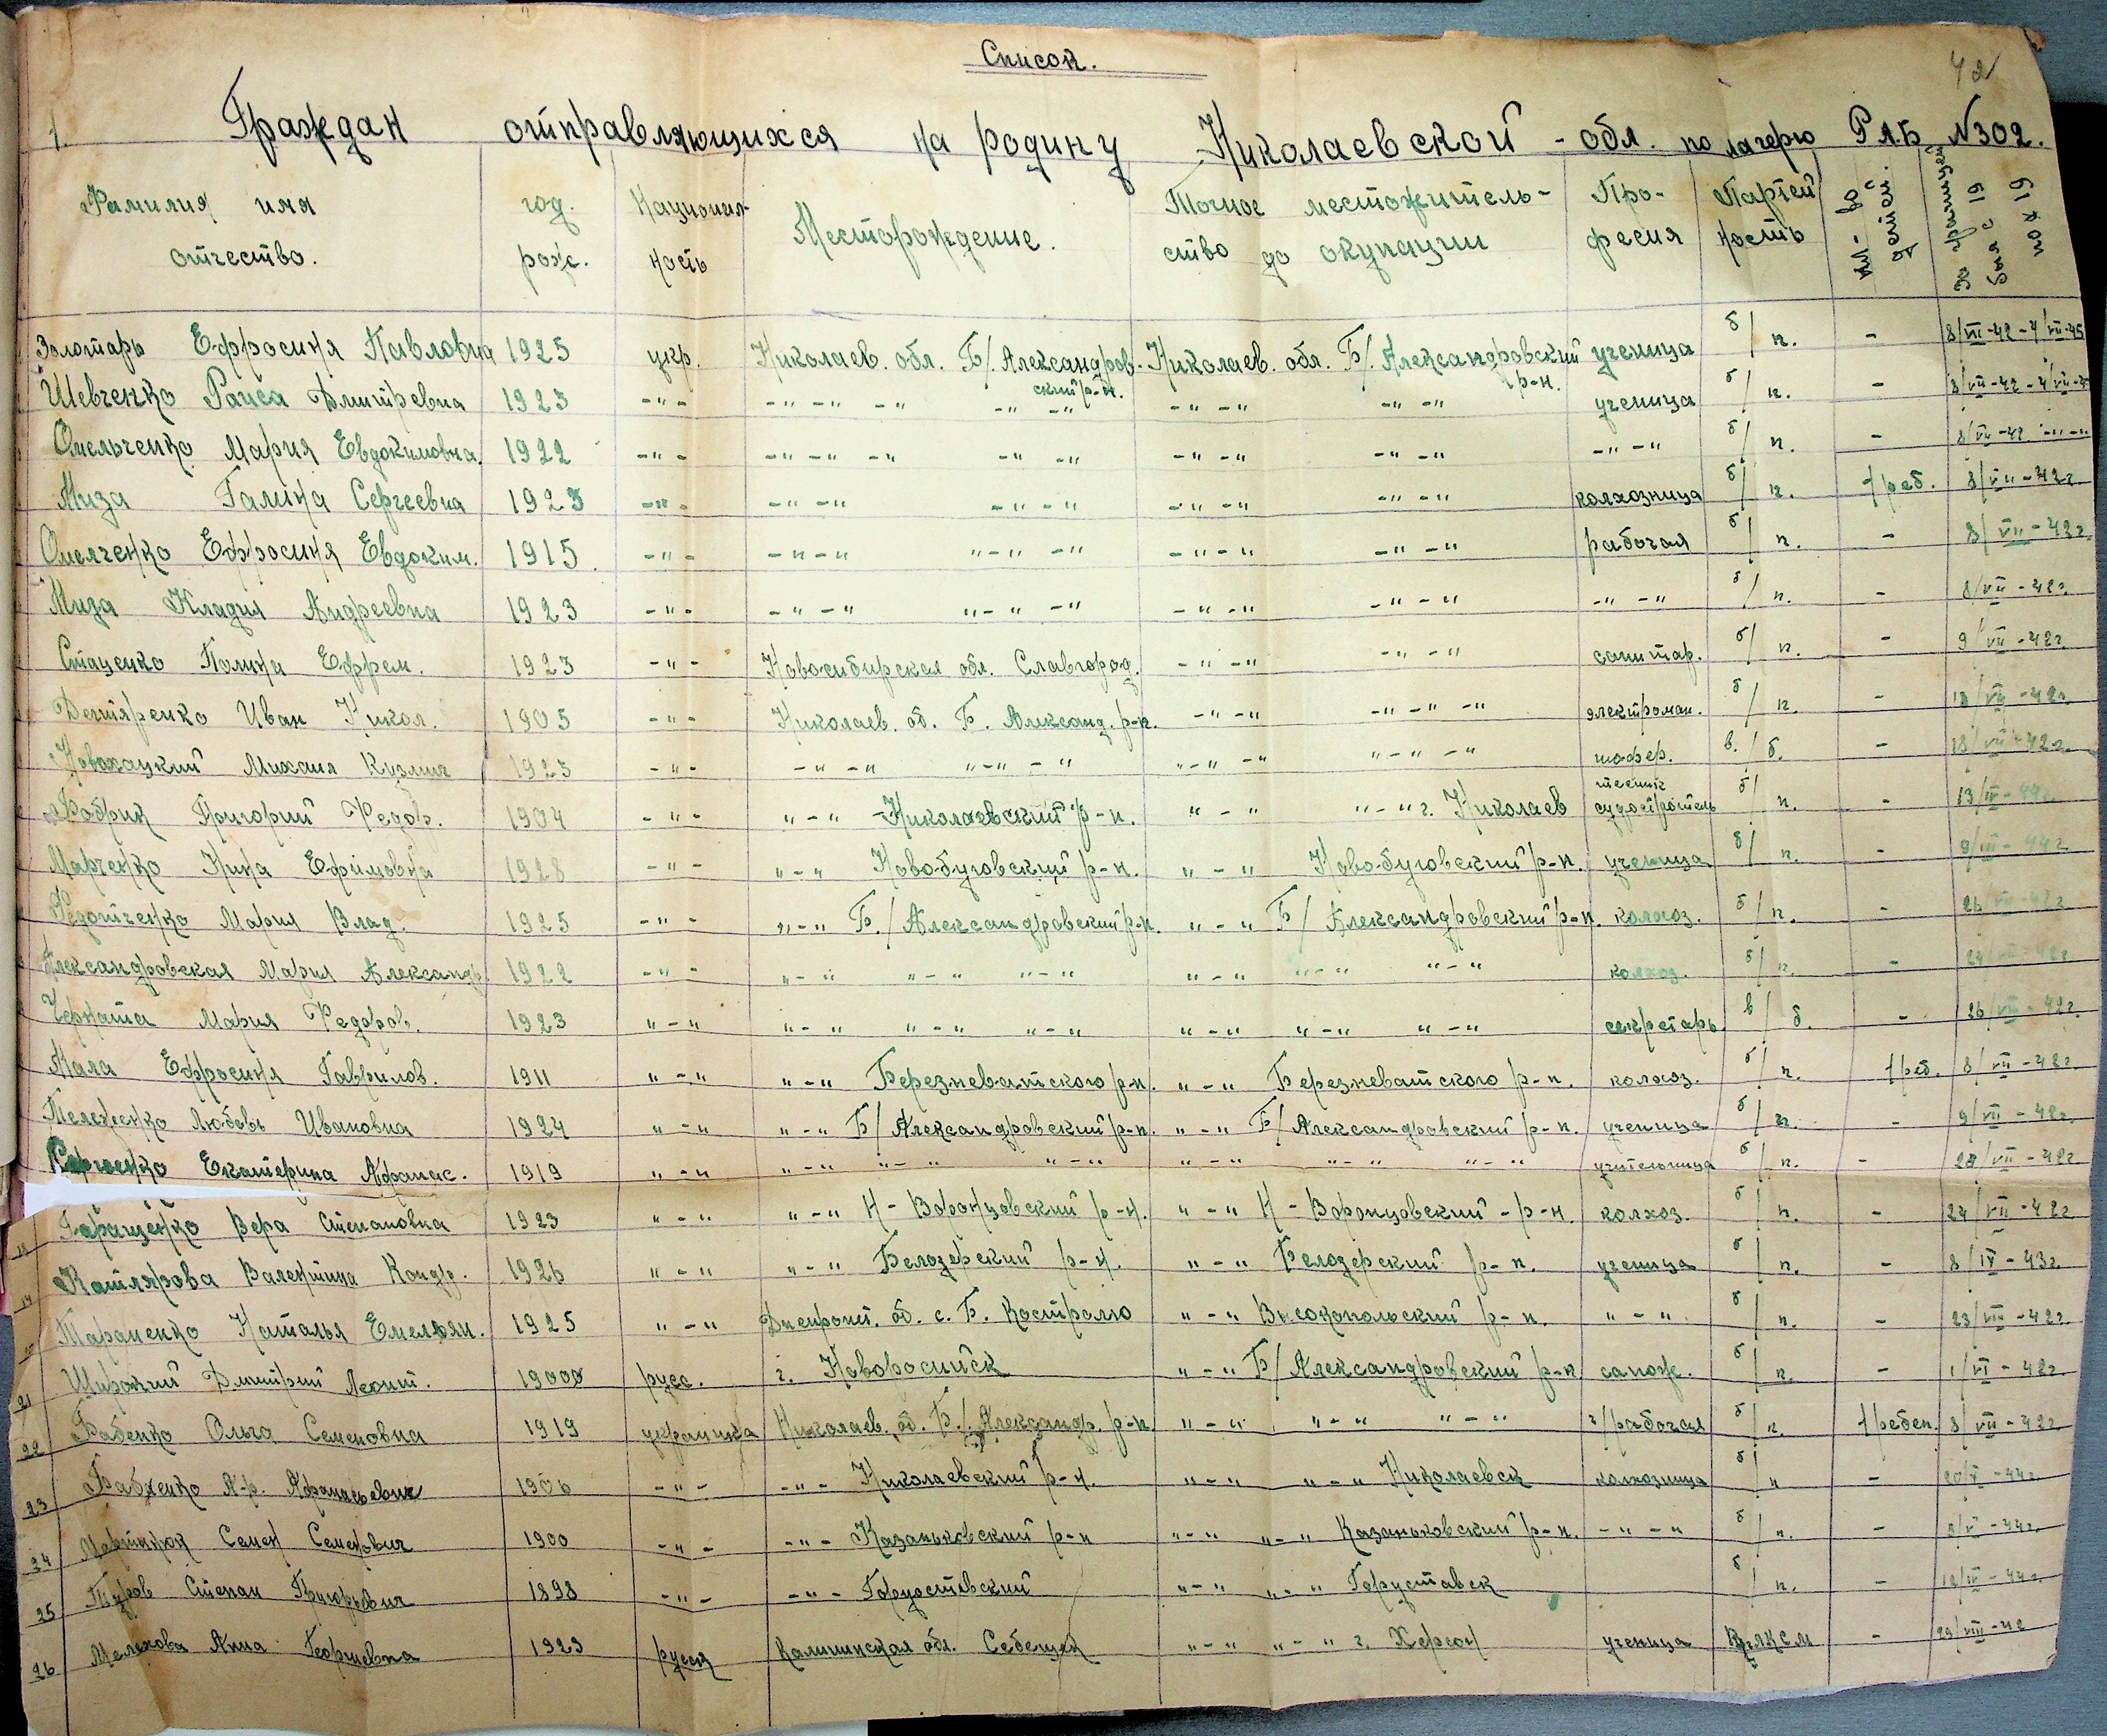 Список.
42
1. Граждан отправляющихся на родину Николаевской - обл. по лагерю Р.А.Б. N302.
Фамилия имя отчество. год. рож. Националь- ность Месторождение. Точное местожитель- ство до окупации Про- фесия Партей ность кол-во детей. За границей был с 19 по х 19
Золотарь Ефросиня Павловна 1925 укр. Николаев. обл. Б/Александров- Николаев. обл. Б/Александровский ученица б/п. - 8/VII-42-4/VII-45
ский р-н. р-н.
Шевченко Раиса Дмитревна 1923 -"- -"-"-"-" -"-" -"-" -"-" ученица б/п. - 8/VII-42-4/VII-
Омельченко Мария Евдокимовна. 1922 -"- -"-"-"-" -"-" -"-" -"-" -"-" б/п. - 8/VII-42 -"-"
Миза Галина Сергеевна 1923 -"- -"-" -"-" -"-" -"-" колхозница б/п. 1 реб. 8/VII-42г.
Омелченко Ефросиня Евдоким. 1915. -"- -"-" "-"-" -"-" -"-" рабочая б/п. - 8/VII-42г.
Миза Кладия Андреевна 1923 -"- -"-" "-"-" -"-" -"-" -"-" б/п. - 8/VII-42г.
Стаценко Полина Ефрем. 1923 -"- Новосибирская обл. Славгород. -"-" -"-" санитар. б/п. - 9/VII-42г.
Дегтяренко Иван Никол. 1905 -"- Николаев. об. Б. Александ. р-н. -"-" -"-"-" электроман. б/п. - 18/VII-42г.
Новохацкий Михаил Кузмич 1923 -"- -"-" "-"-" "-"-" "-"-" шофер. в./б. - 18/VII-42г.
Григорий Федор. 1904 -"- "-" Николаевский р-н. "-" "-" г. Николаев судостроитель б/п. - 13/IV-44г.
Марченко Нина Ефимовна 1928 -"- "-" Ново-буговский р-н. "-" Ново-буговский р-н. ученица б/п. - 9/III-44г.
Федотченко Мария Влад. 1925 -"- "-" Б./Александровский р-н. "-" Б/Александровский р-н. колхоз. б/п. - 26/VII-42г.
Александровская Мария Александр. 1922 -"- "-" "-" "-" "-" "-" "-" колхоз. б/п. - 24/VII-42г.
Мария Федоров. 1923 "-" "-" "-" "-" "-" "-" "-" секретарь в/б. - 26/VII-42г.
Мала Ефросиня Гаврилов. 1911 "-" "-" Березневатского р-н. "-" Березневатского р-н. колхоз. б/п. 1 реб. 8/VII-42г.
Тележенко Любовь Ивановна 1924 "-" "-" Б/Александровский р-н. "-" Б/Александровский р-н. ученица б/п. - 9/VII-42г.
Сергиенко Екатерина Афанас. 1919 "-" "-" "-" "-" "-" "-" "-" учительница б/п. - /VII-42г.
18 Геращенко Вера Степановна 1923 "-" "-" Н-Воронцовский р-н. "-" Н-Воронцовский-р-н. колхоз. б/п. - 24/VII-42г.
19 Катлярова Валентина Кондр. 1926 "-" "-" Белозерский р-н. "-" Белозерский р-н. ученица б/п. - 8/IV-43г.
20 Тараненко Наталья Емельян. 1925 "-" Днепропет. об. с. Б. Костролю "-" Высокопольский р-н. "-" б/п. - 23/VII-42г.
21 Широкий Дмитрий Леонт. 1900 русс. г. Новоросийск "-" Б/Александровский р-н сапож. б/п. - 1/VI-42г.
22 Бабенко Ольга Семеновна 1919 украинка Николаев. об. Б./Александр. р-н. "-" "-" "-" ч/рабочая б/п. 1 ребен. 8/VII-42г.
23 Афанасьевич 1906 -"- -"- Николаевский р-н. "-" "-" Николаевск колхозница б/п - 20/V-44г.
24 Мартинюк Семен Семенович 1900 -"- -"- Казаньковский р-н "-" "-" Казаньковский р-н. -"-" б/п. - 8/V-44г.
25 Степан Григорьевич 1898 -"- -"- Горустевский "-" "-" Горуставск б/п. - 12/IV-44г.
26 Мелехова Анна Георгиевна 1923 русск Калининская обл. Себещек "-" "-" г. Херсон ученица ВЛКСМ - 29/VIII-42